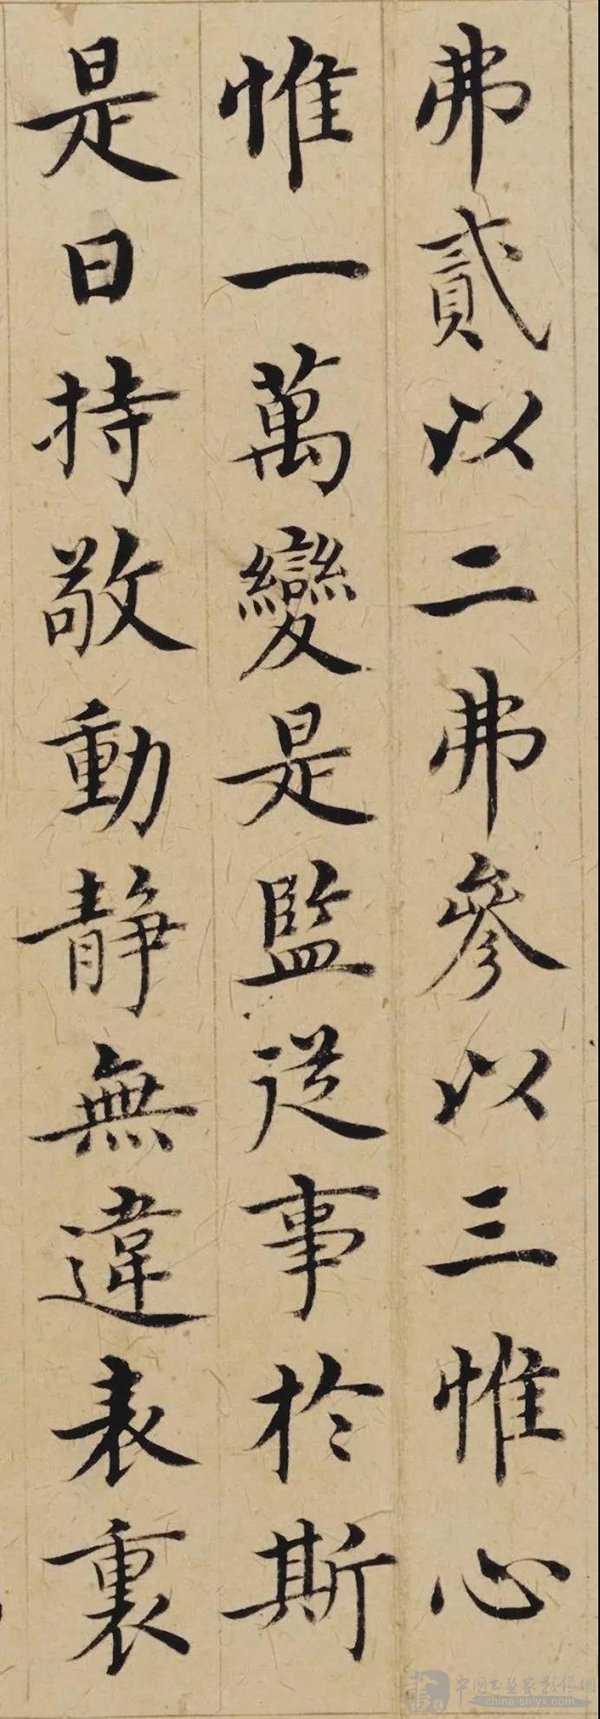 弗貳以二弗參以三惟心
惟一萬變是監從事於斯
是曰持敬動靜無違表裏
中国书画家影像网
china-shjyx.com